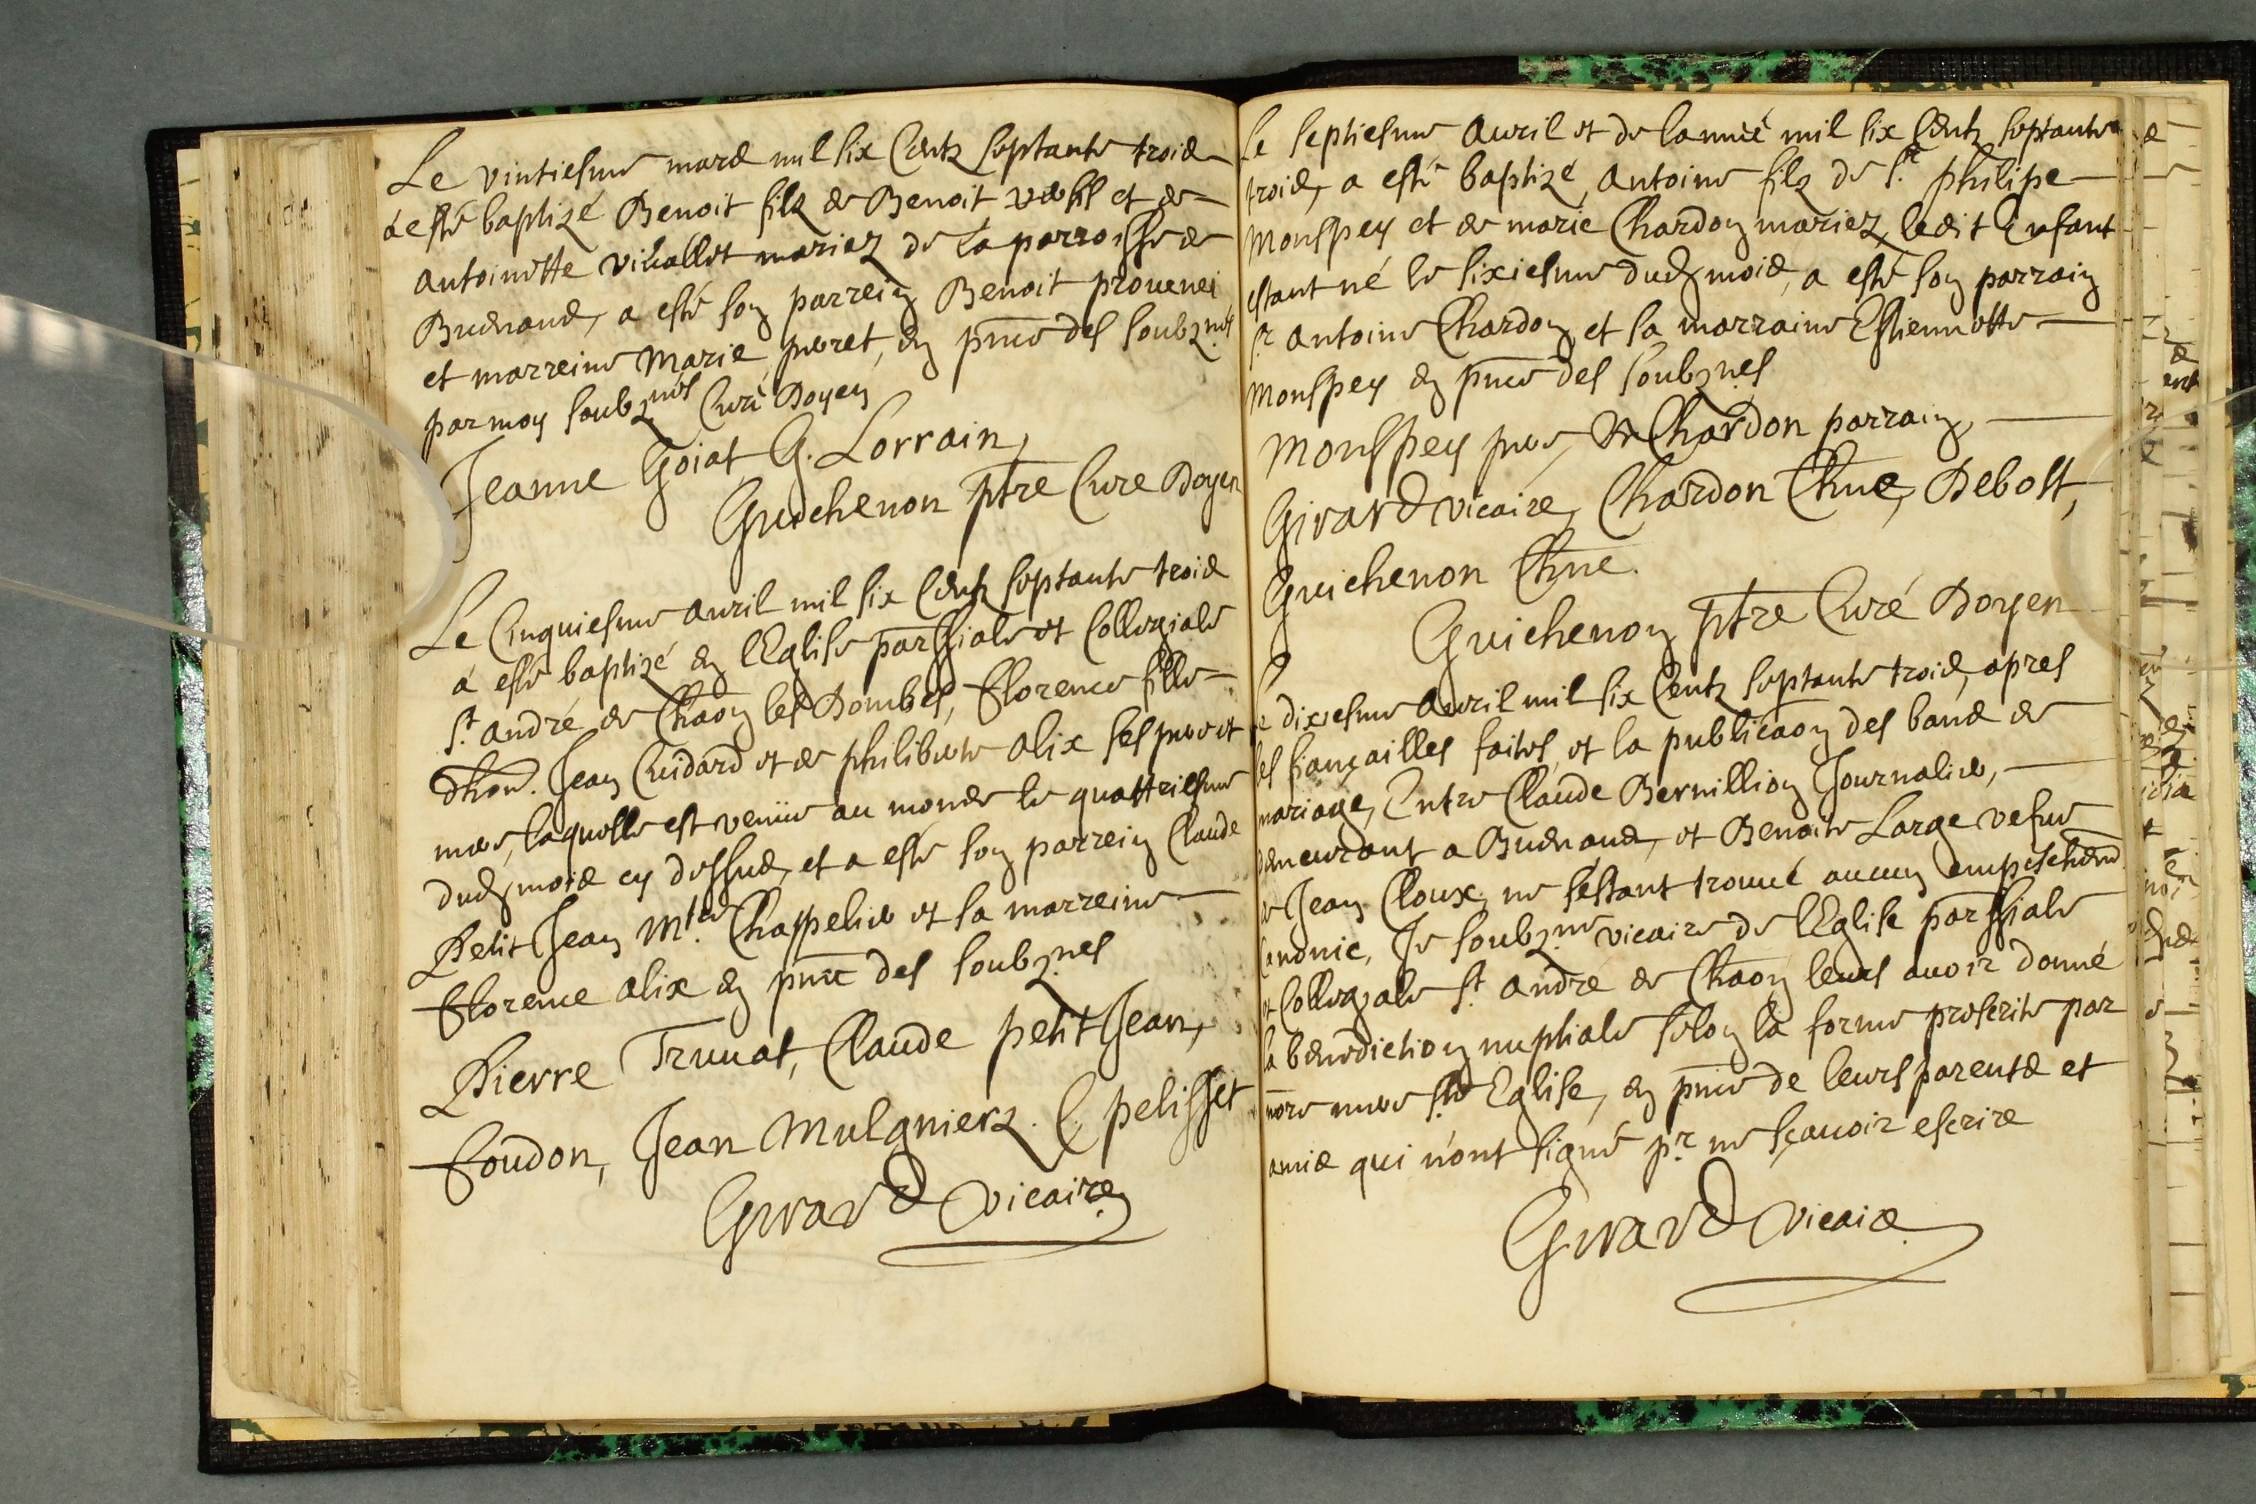 Le vintiesme mars mil six Centz septante trois
a esté baptizé Benoit filz de Benoit et de
antoinette mariez de la parroisse de
a esté son parrein Benoit
et marreine Marie peret, en pnce des soubznés
par moy soubzné Curé Doyen
Jeanne Goiat G. Lorrain,
Guichenon ptre Curé Doyen
Le Cinquiesme auril mil six Centz septante trois
a esté baptizé en l'Eglise parssiale et Collegiale
St. andré de Chaōn les Dombes, fflorence fille
d'hon. Jean Cuidard et de philiberte alix ses pere et
mere, laquelle est venüe au monde le quattriesme
dud. mois cy dessus, et a esté son parrein Claude
Petit Jean Mtre. Chappelier et sa marreine
fflorence alix en pnce des soubznes
Pierre Truuat, Claude petit Jean,
ffoudon, Jean Mulgnierz. C. pelisset
Girard vicaire
Le septiesme auril et de lannée mil six Centz septante
trois, a esté baptizé, antoine filz de Sr. philipe
Monspey et de marie Chardon mariez, ledit Enfant
estant né le sixiesme dud. mois, a esté son parrain
Sr. antoine Chardon et sa marraine Estiennette
Monspey en pnce des soubznes
Monspey pere, A Chardon parrain,
Girard vicaire, Chardon Chne, Debost,
Guichenon Chne.
Guichenon ptre Curé Doyen
Le dixiesme auril mil six Centz septante trois, apres
les fiançailles faites, et la publicaōn des bans de
mariage, Entre Claude Bernillion Journalier,
demeurant a et Benoite Large vefue
de Jean Cloux, ne s'éstant trouué aucun empeschemt.
Canonic, Je soubzné vicaire de l'Eglise parssiale
et Collegiale St. andré de Chaōn leurs auoir donné
la benediction nuptiale selon la forme prescrite par
nōre mere ste Eglise, en pnce de leurs parents et
amis qui n'ont signé pr. ne sçauoir escrire
Girard vicaire